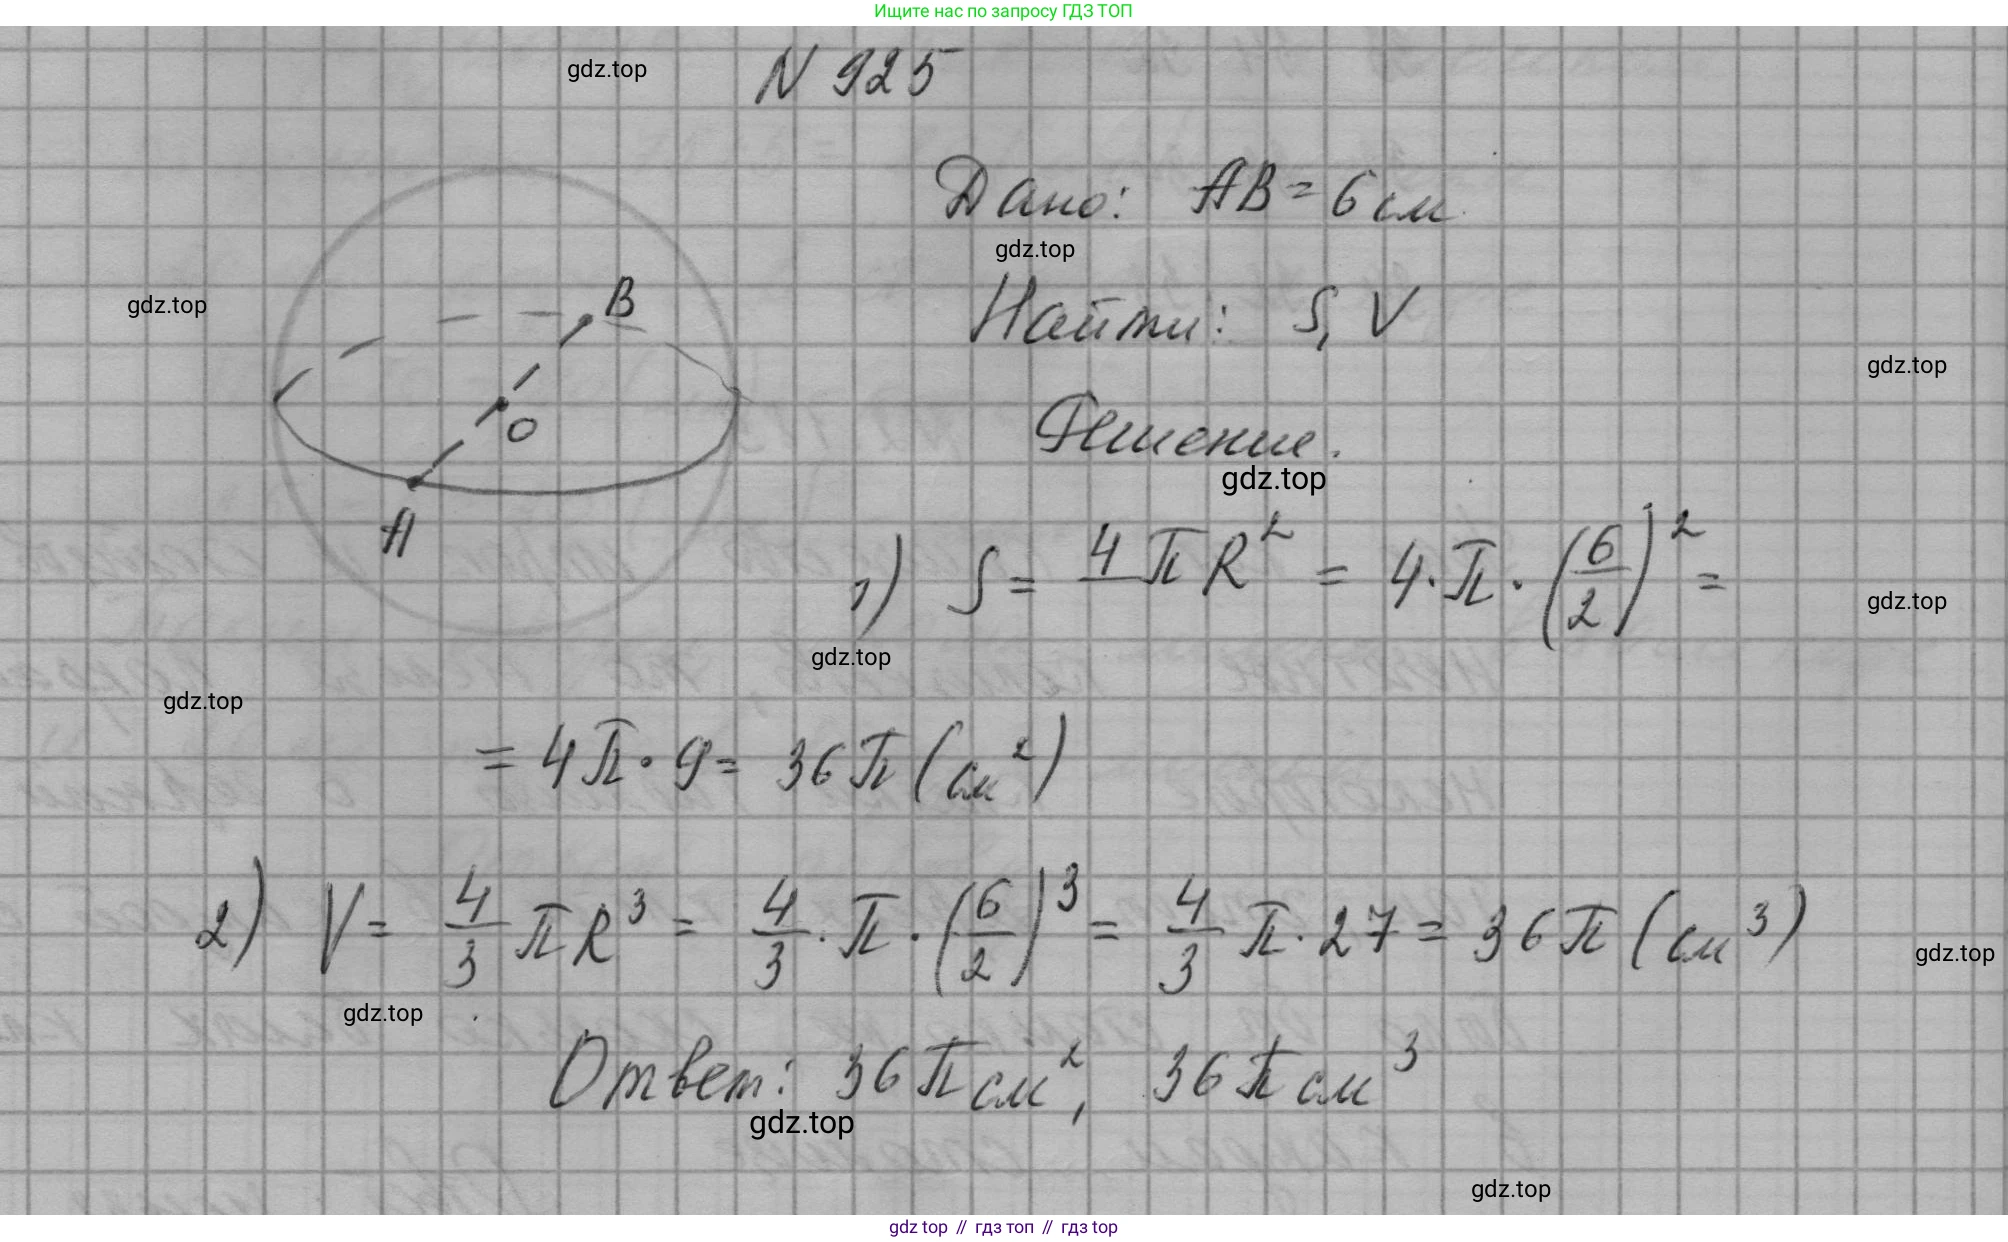 Ищите нас по запросу ГДЗ ТОП
gdz.top
N 925
Дано: AB = 6 см
gdz.top
gdz.top
B
Найти: S, V
gdz.top
O
Решение.
gdz.top
A
1) S = 4πR² = 4·π·(6/2)² =
gdz.top
gdz.top
gdz.top
= 4π·9 = 36π (см²)
2) V = 4/3 πR³ = 4/3·π·(6/2)³ = 4/3 π·27 = 36π (см³)
gdz.top
gdz.top
Ответ: 36π см², 36π см³
gdz.top
gdz.top
gdz top // гдз топ // гдз top